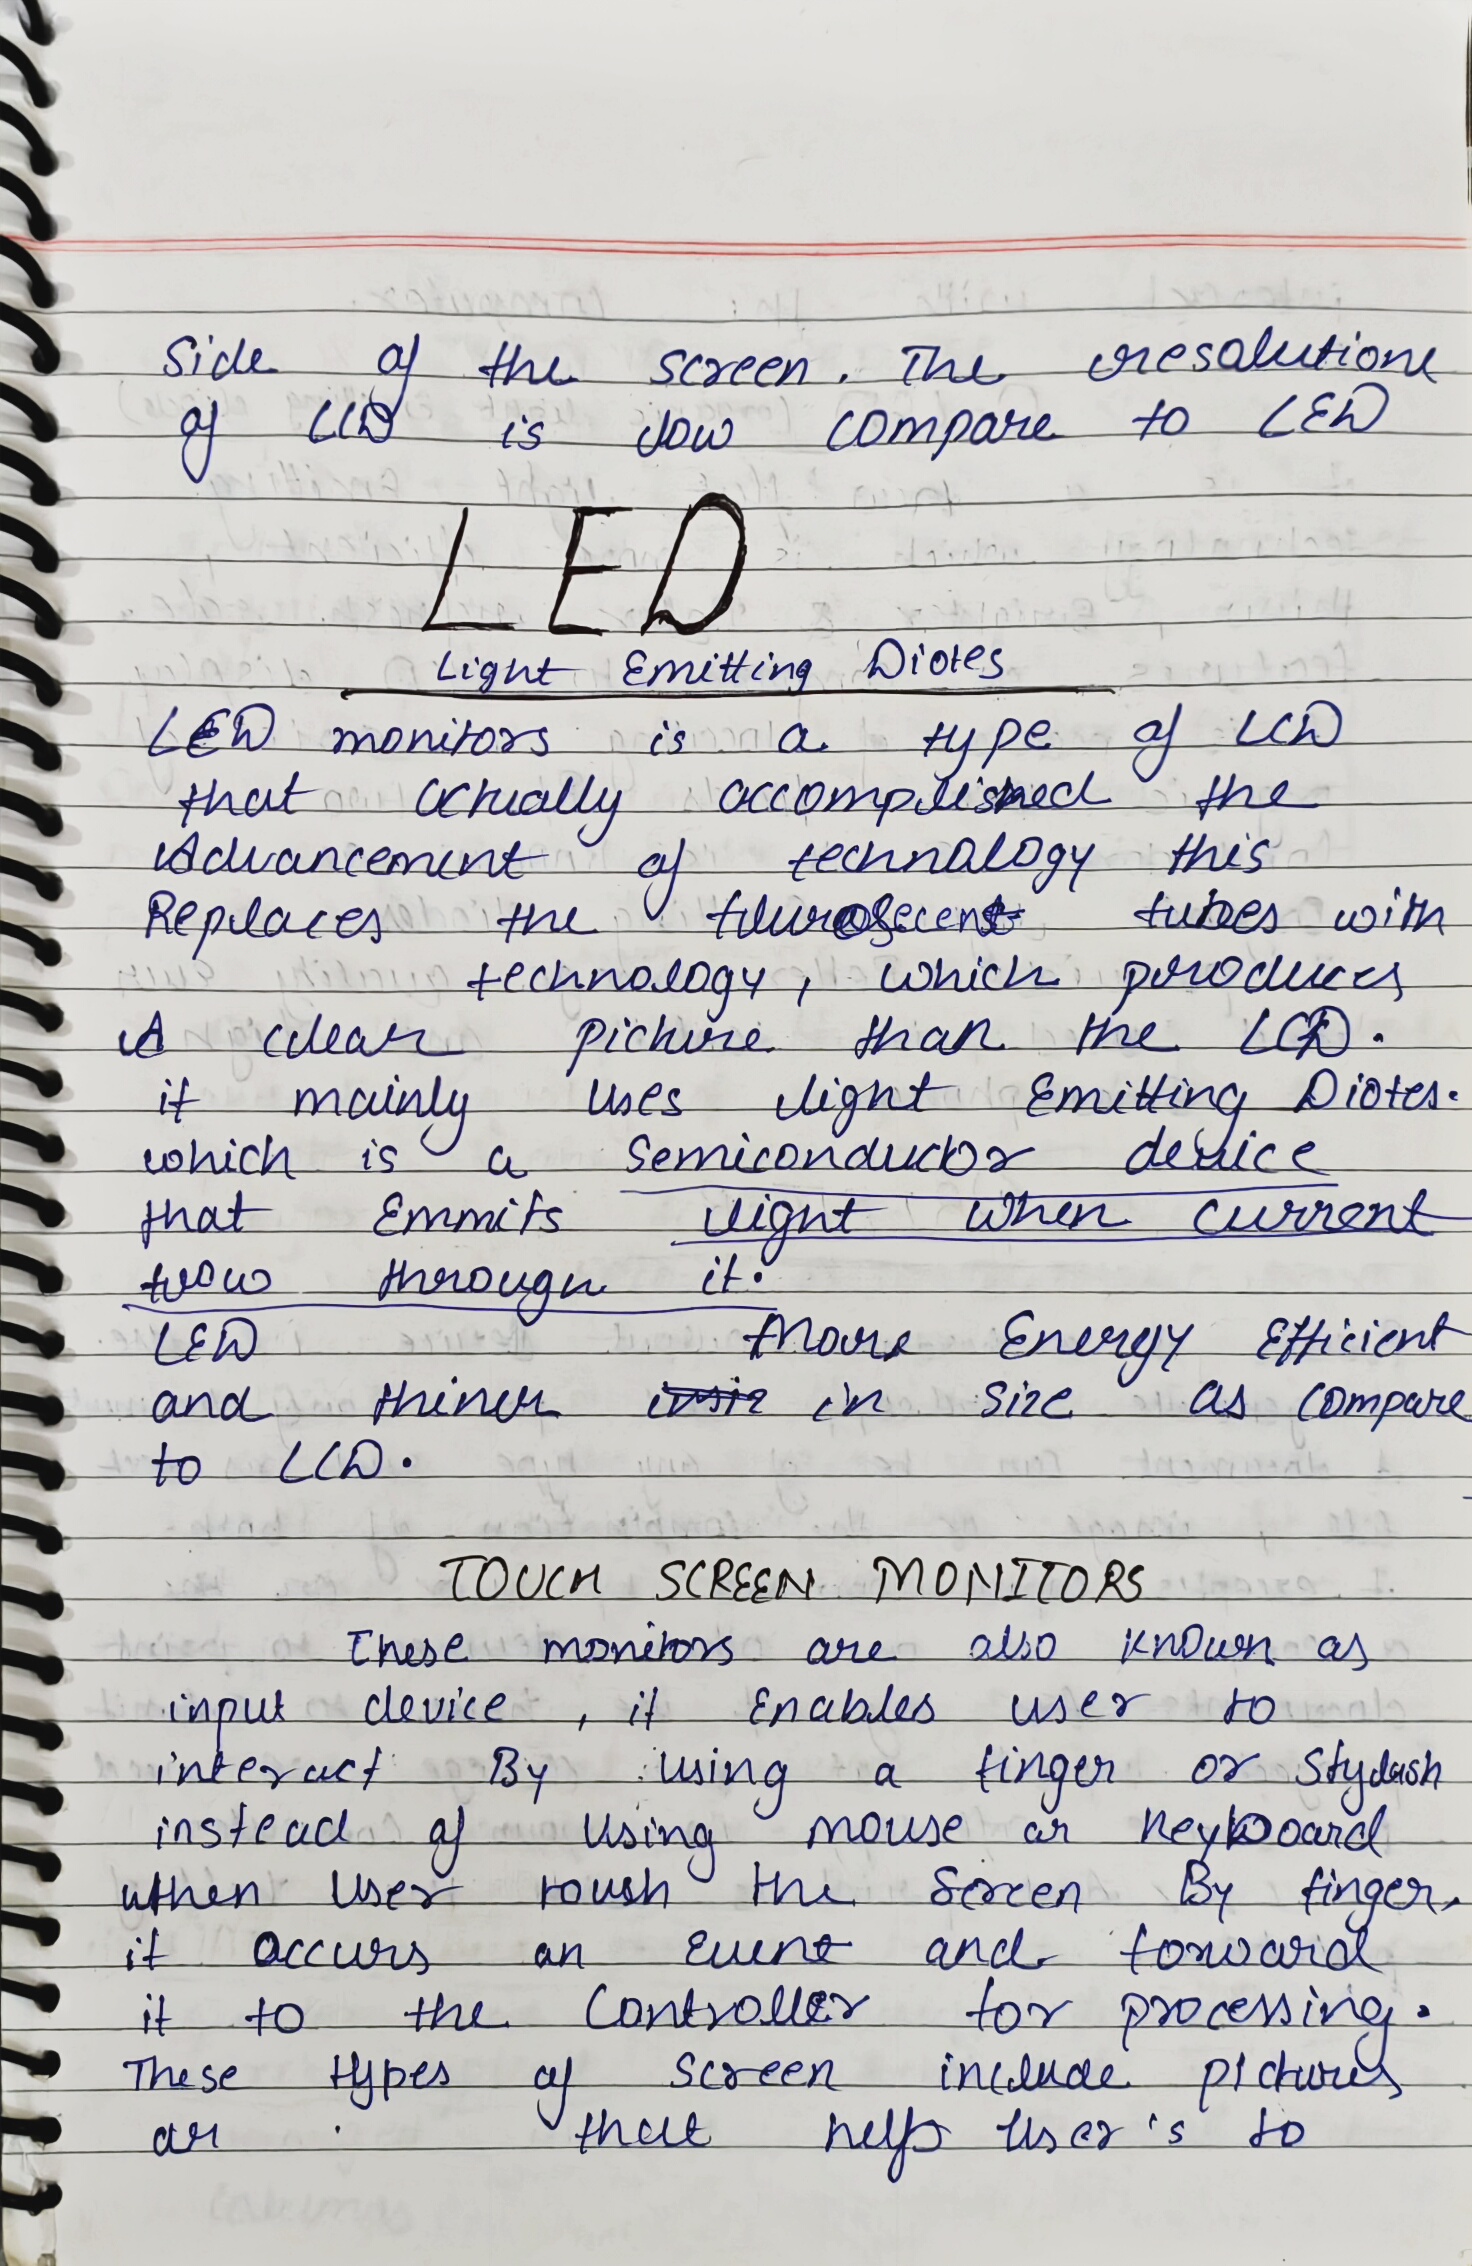 Side of the screen. The resolutione
of LCD is low compare to LED
LED
Light Emitting Diotes
LED monitors is a type of LCD
that actually accomplished the
Advancement of technology this
Replaces the tubes with
technology, which produces
A clear picture than the LCD.
it mainly uses light Emitting Diotes.
which is a semiconductor device
that Emmits light when current
flow through it.
LED more Energy Efficient
and thiner in size as compare
to LCD.
TOUCH SCREEN MONITORS
These monitors are also known as
input device, it Enables user to
interact By using a finger or Stylash
instead of using mouse or Keyboard
when user toush the Screen By finger,
it occurs an Event and forward
it to the Controller for processing.
These types of Screen include pictures
or that help User's to